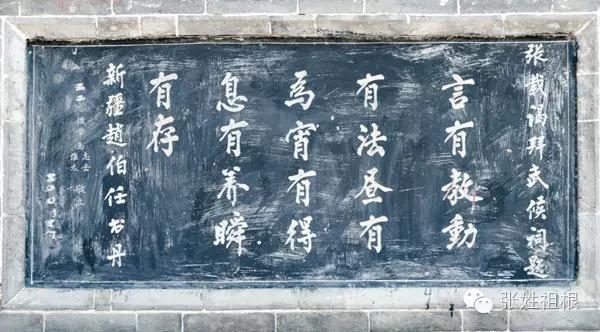 张载谒拜武侯祠题
言有教動
有法昼有
為宵有得
息有养瞬
有存
新疆趙伯任书丹
张姓祖根